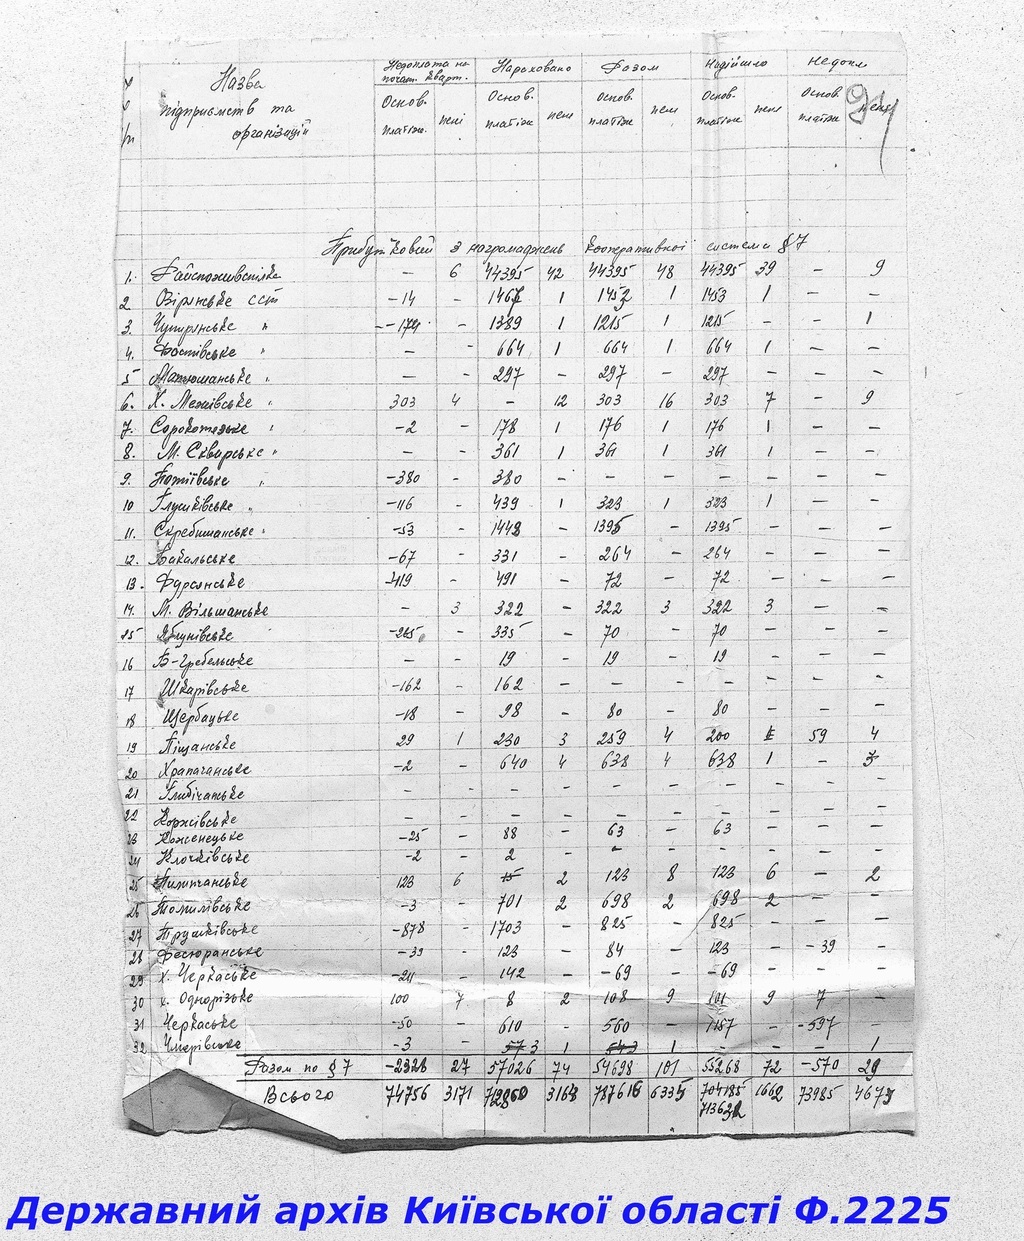 Назва підприємств та організацій
Недоплата на почат. кварт. Нараховано Разом Надійшло Недопл
Основ. платіж. пені Основ. платіж пені Основ. платіж пені Основ. платіж пені Основ. платіж пеня
Прибутковий з нагромаджень кооперативної системи §7
1. Райспоживспілка — 6 44395 42 44395 48 44395 39 – 9
2 Озірянське ССТ –14 - 1467 1 1453 1 1453 1 – –
3. Чупирянське " –174 - 1389 1 1215 1 1215 – – 1
4. Фастівське " – - 664 1 664 1 664 1 – –
5 Матюшанське " — – 297 – 297 – 297 – – –
6. Х. Межівське " 303 4 – 12 303 16 303 7 – 9
7. Сорокотязьке " –2 – 178 1 176 1 176 1 – –
8. М. Сквирське " – – 361 1 361 1 361 1 – –
9. Потіївське " –380 - 380 – – – – – – –
10 Глушківське " –116 - 439 1 323 1 323 1 – –
11. Скребишанське " –53 - 1448 – 1395 – 1395 – – –
12. Бакальське –67 – 331 – 264 – 264 – – –
13. Фурсянське –419 - 491 – 72 – 72 – – –
14. М. Вільшанське – 3 322 – 322 3 322 3 – –
15 Яблунівське –265 - 335 – 70 – 70 – – –
16 Б-Гребельське – – 19 – 19 – 19 – – –
17 Шкарівське –162 – 162 – – – – – – –
18 Щербацьке –18 – 98 – 80 – 80 – – –
19 Піщанське 29 1 230 3 259 4 200 59 4
20 Храпачанське –2 – 640 4 638 4 638 1 – 3
21 Глибічатьке – – – – – – – – – –
22 Коржівське – – – – – – – – – –
23 Коженецьке –25 – 88 – 63 – 63 – – –
24 Клочківське –2 – 2 – – – – – – –
25 Пилипчанське 123 6 15 2 123 8 123 6 – 2
26 Томилівське –3 – 701 2 698 2 698 2 – –
27 Трушківське –878 – 1703 – 825 – 825 – – –
28 Фесюранське –39 – 123 – 84 – 123 – –39 –
29 х. Черкаське –211 – 142 – –69 – –69 – – –
30 х. Однорізьке 100 7 8 2 108 9 101 9 7 –
31 Черкаське –50 – 610 – 560 – 1157 – –597 –
32 Чмирівське –3 – 3 1 – 1 – – – 1
Разом по §7 –2328 27 57026 74 54698 101 55268 72 –570 29
Всього 74756 3171 712860 3164 787616 6335 704185 1662 73985 4673
713631
Державний архів Київської області Ф.2225